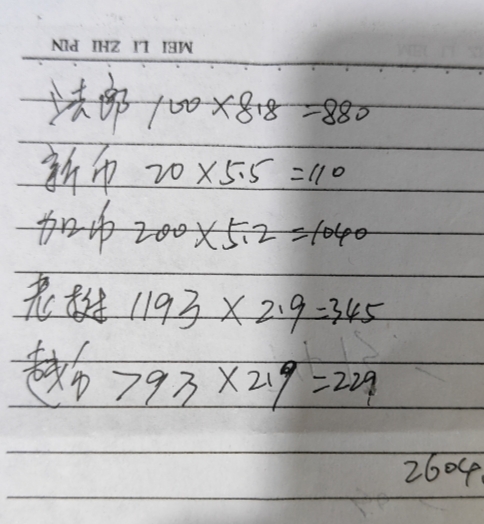 MEI LI ZHI PIN
法郎 100×8.8=880
新币 20×5.5=110
加币 200×5.2=1040
老挝 119万×2.9=345
越币 79万×2.9=229
2604.